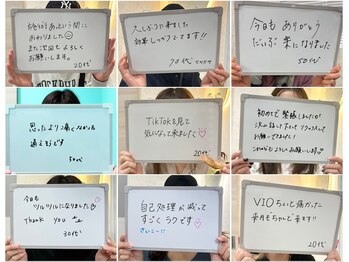 始まりあっという間に
おわりました☺
また次回もよろしく
お願いします。
20代
久しぶりに来ました
効果しっかりでてます!!
70代
今日も ありがとう
だいぶ 楽になりました
50代
思ったより痛くなかった
通えそうです
50代
TikTokを見て
気になって来ました♡
20代
初めてで緊張しましたが
リラックスして
お願いできました!
これからもよろしくお願いします
今日も
ツルツルになりました
Thank you
30代
自己処理が減って
すごくラクです♡
さいこー!!
VIOちょっと痛かった
来月もちゃんと来ます!!
20代